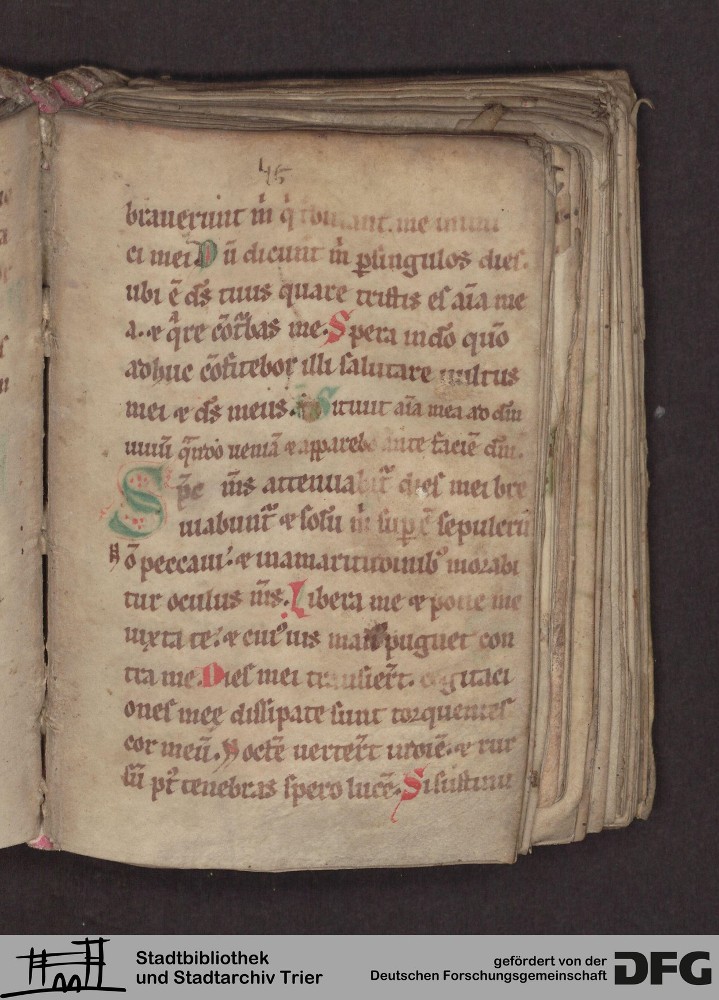 45
brauerunt m̄ q̇ tribulant me inimi
ci mei D ū dicunt m̄ ꝑ singulos dies.
ubi ē d̄s tuus quare tristis es aīa me
a. ⁊ qͣre cōt̄bas me. Spera in dō qūo
adhuc cōfitebor illi salutare uultus
mei ⁊ d̄s meus. Sitiuit aīa mea ad dm̄
uiuū qͣndo ueniā ⁊ apparebo ante faciē dm̄.
Sp̄c m̄s attenuabit᷑ dies mei bre
uiabunt᷑ ⁊ solū m̄ supē sepulcrū
Nō peccaui. ⁊ in amaritudinibꝰ morabi
tur oculus m̄s. Libera me ⁊ pone me
iuxta te. ⁊ cuiꝰuis manꝰ pugnet con
tra me. Dies mei transier̄t. cogitaci
ones mee dissipate sunt torquentes
cor meū. Noctē uerter̄t in diē. ⁊ rur
sū pꝰt tenebras spero lucē. Si sustinu
Stadtbibliothek
und Stadtarchiv Trier
gefördert von der
Deutschen Forschungsgemeinschaft
DFG